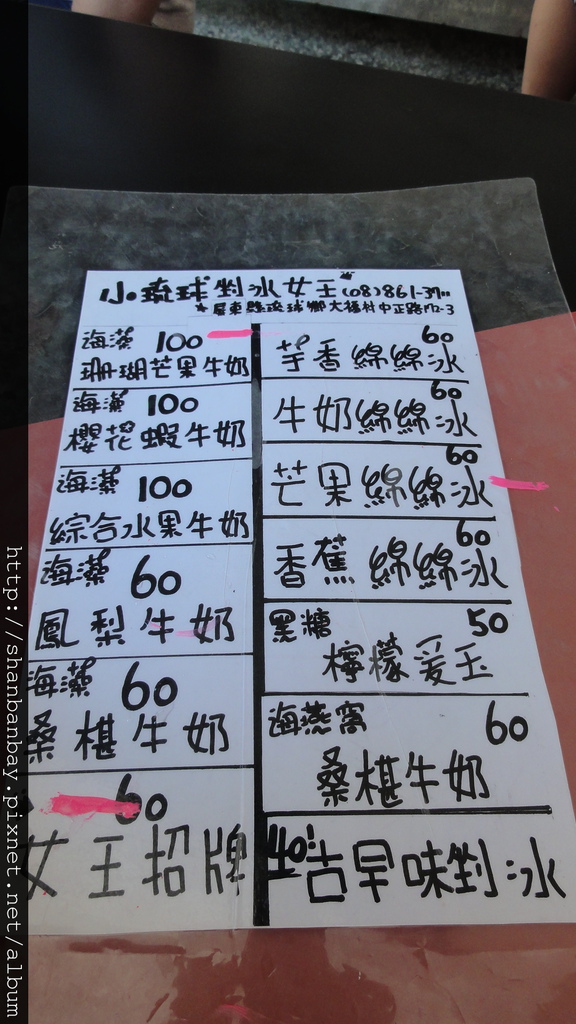 小琉球剉冰女王 (08)861-37
★屏東縣琉球鄉大福村中正路172-3
海藻 100
珊瑚芒果牛奶
海藻 100
櫻花蝦牛奶
海藻 100
綜合水果牛奶
海藻 60
鳳梨牛奶
海藻 60
桑椹牛奶
60
女王招牌
60
芋香綿綿冰
60
牛奶綿綿冰
60
芒果綿綿冰
60
香蕉綿綿冰
黑糖 50
檸檬爱玉
海燕窩 60
桑椹牛奶
40 古早味剉冰
http://shanbanbay.pixnet.net/album